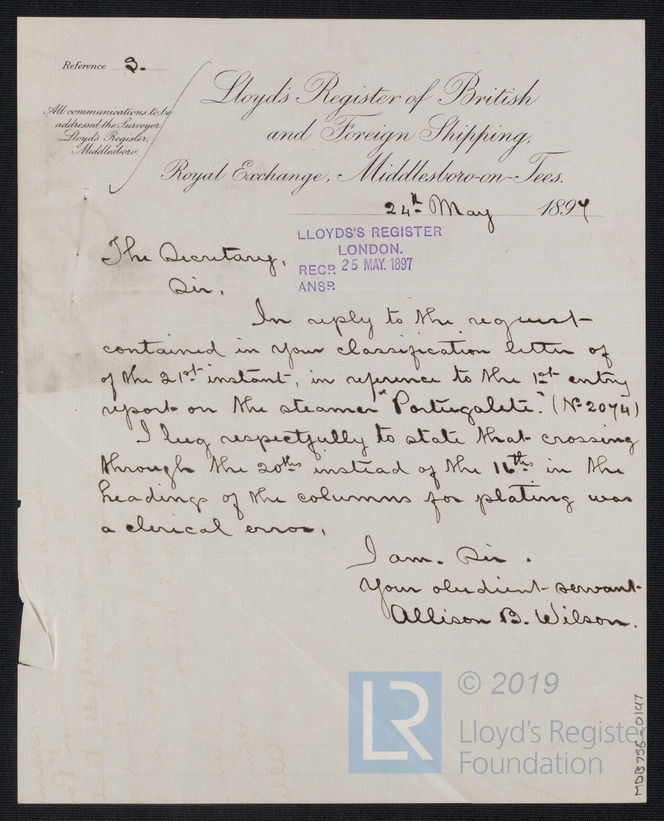 Reference 3.
All communications to be
addressed the Surveyor
Lloyd's Register,
Middlesboro'.
Lloyd's Register of British
and Foreign Shipping.
Royal Exchange, Middlesboro-on-Tees.
24th May 1897
LLOYDS'S REGISTER
LONDON.
RECD. 25 MAY. 1897
ANSD.
The Secretary,
Sir,
In reply to the request
contained in your classification letter of
of the 21st instant, in reference to the 1st entry
report on the steamer "Portugalete." (No 2074)
I beg respectfully to state that crossing
through the 20ths instead of the 16ths in the
headings of the columns for plating was
a clerical error.
I am. Sir.
Your obedient servant
Allison B. Wilson.
LR
© 2019
Lloyd's Register
Foundation
MDB756-0197